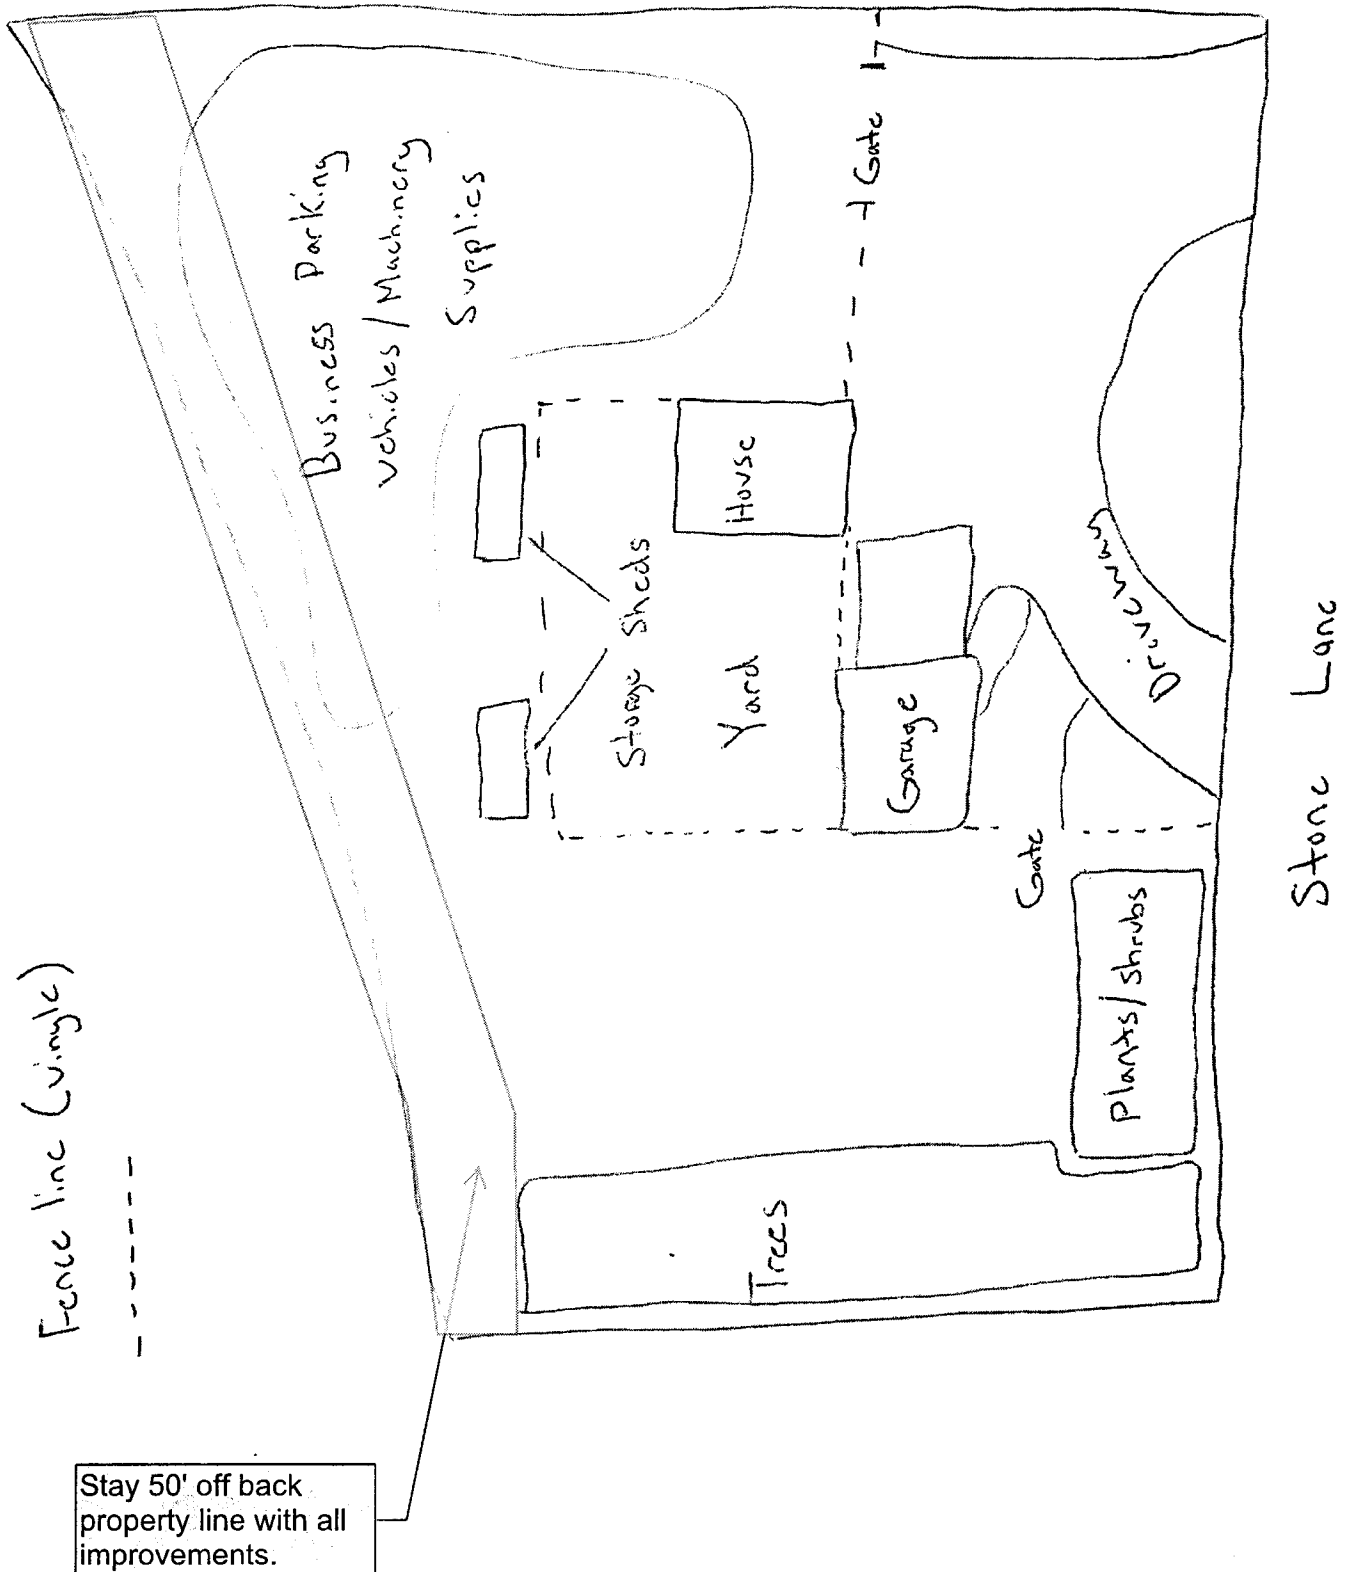 Fence line (vinyle)
Business Parking
vehicles / Machinery
Supplies
Gate
House
Storage Sheds
Yard
Garage
Driveway
Gate
Plants/shrubs
Trees
Stone Lane
Stay 50' off back
property line with all
improvements.